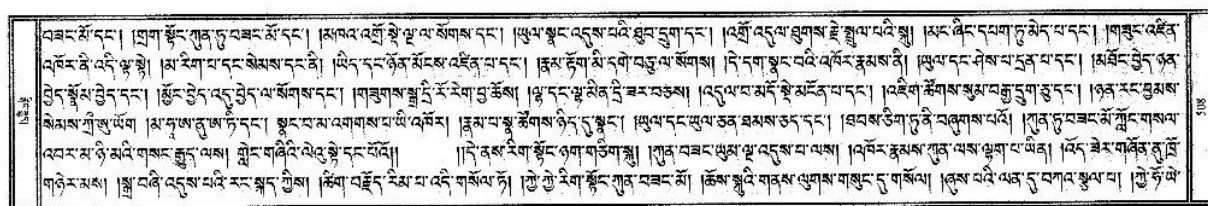 བཟང་མོ་དང་། །གྲག་སྟོང་ཀུན་ཏུ་བཟང་མོ་དང་། །མཁའ་འགྲོ་སྡེ་ལྔ་ལ་སོགས་དང་། །ཡུལ་སྣང་འདུས་པའི་ཐུབ་དྲུག་དང་། །འགྲོ་འདུལ་ཐུགས་རྗེ་སྤྲུལ་པའི་སྐུ། །མང་ཞིང་དཔག་ཏུ་མེད་པ་དང་། །གཟུང་འཛིན་
འཁོར་ནི་འདི་ལྟ་སྟེ། །མ་རིག་པ་དང་སེམས་དང་ནི། །ཡིད་དང་ཉོན་མོངས་འཛིན་པ་དང་། །རྣམ་རྟོག་མི་དགེ་བཅུ་ལ་སོགས། །དེ་དག་སྣང་བའི་འཁོར་རྣམས་ནི། །ཡུལ་དང་ཤེས་པ་དྲན་པ་དང་། །མཐོང་བྱེད་ཉན་
བྱེད་སྣོམ་བྱེད་དང་། །མྱོང་བྱེད་འདུ་བྱེད་ལ་སོགས་དང་། །གཟུགས་སྒྲ་དྲི་རོ་རེག་བྱ་ཆོས། །ལྷ་དང་ལྷ་མིན་དྲི་ཟར་བཅས། །འདུལ་བ་མདོ་སྡེ་མངོན་པ་དང་། །འཇིག་ཚོགས་སུམ་བརྒྱ་དྲུག་ཅུ་དང་། །ཉན་རང་བྱམས་
སེམས་ཀྲི་ཨུ་ཡོག །མ་ཧཱ་ཨ་ནུ་ཨ་ཏི་དང་། སྣང་བ་མ་འགགས་པ་ཡི་འཁོར། །རྣམ་པ་སྣ་ཚོགས་ཉིད་དུ་སྣང་། །ཡུལ་དང་ཡུལ་ཅན་ཐམས་ཅད་དང་། །ཐབས་ཅིག་ཏུ་ནི་བཞུགས་པའོ། །ཀུན་ཏུ་བཟང་མོ་ཀློང་གསལ་
འབར་མ་ཉི་མའི་གསང་རྒྱུད་ལས། གླེང་གཞིའི་ལེའུ་སྟེ་དང་པོའོ།། །།དེ་ནས་རིག་སྟོང་ཉག་གཅིག་སྐུ། །ཀུན་བཟང་ཡུམ་ལྔ་འདུས་པ་ལས། །འཁོར་རྣམས་ཀུན་ལས་ལྷག་པ་ཡིན། །འོད་ཟེར་གཞོན་ནུ་ཁྲོ་
གཉེར་མས། །སྒྲ་བཞི་འདུས་པའི་རང་སྐད་ཀྱིས། །ཚིག་བརྗོད་རིམ་པ་འདི་གསོལ་ཏོ། །ཀྱེ་ཀྱེ་རིག་སྟོང་ཀུན་བཟང་མོ། །ཆོས་སྐུའི་གནས་ལུགས་གསུང་དུ་གསོལ། །ཞུས་པའི་ལན་དུ་བཀའ་སྩལ་པ། །ཀྱེ་ཧོ་ཡེ་